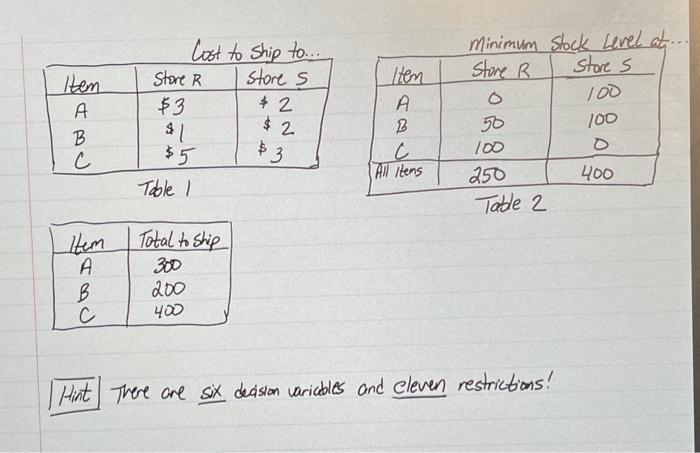 Cost to Ship to...
Item Store R Store S
A $3 $2
B $1 $2
C $5 $3
Table 1
Minimum Stock Level at...
Item Store R Store S
A 0 100
B 50 100
C 100 0
All Items 250 400
Table 2
Item Total to Ship
A 300
B 200
C 400
Hint There are six decision variables and eleven restrictions!